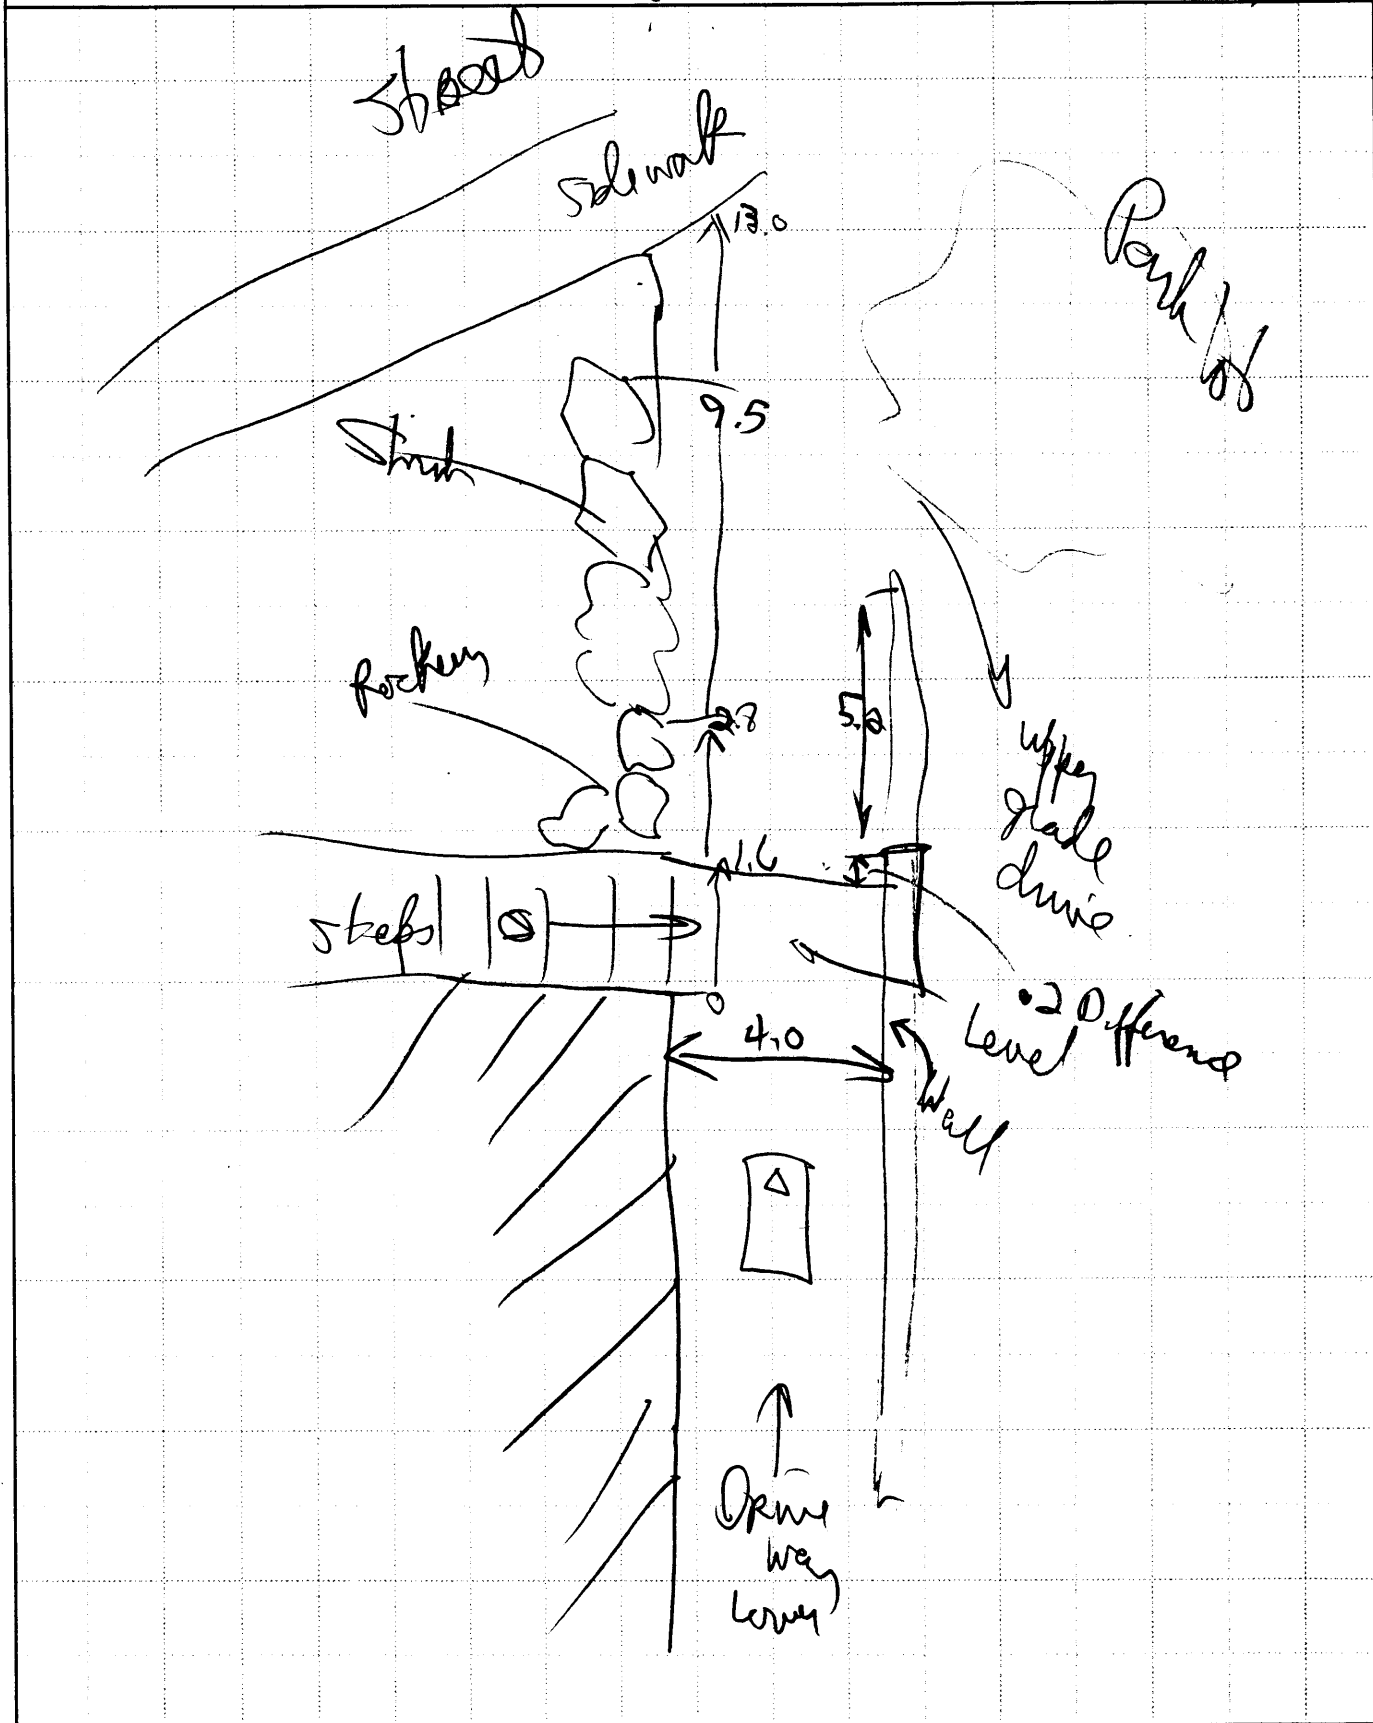 Street
sidewalk
13.0
Park lot
9.5
Shrub
Rockery
2.8
5.2
upper
grade
drive
1.6
steps
0
.2 Difference
Level
4.0
Wall
Drive
way
Lower